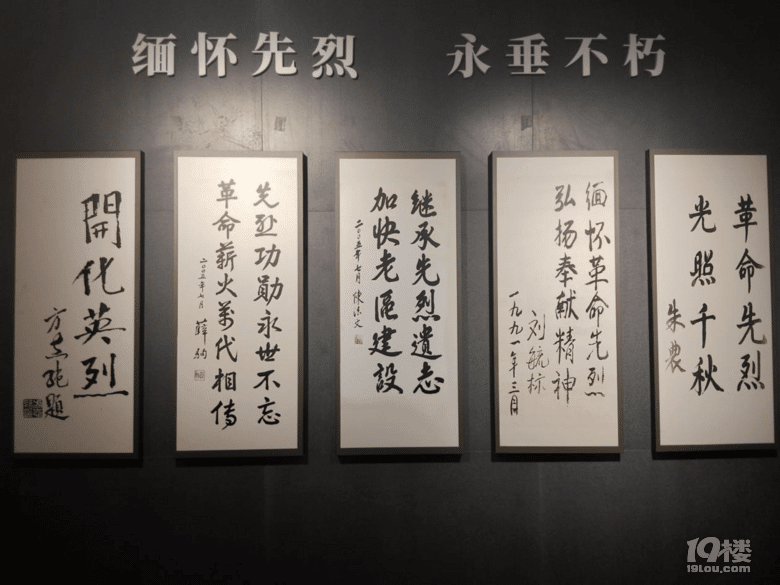 缅怀先烈 永垂不朽
開化英烈
方志純題
先烈功勋永世不忘
革命薪火萬代相传
二〇〇五年七月 薛驹
继承先烈遗志
加快老區建設
二〇〇五年七月 陳法文
缅怀革命先烈
弘扬奉献精神
刘毓标
一九九一年三月
革命先烈
光照千秋
朱農
19楼
19lou.com